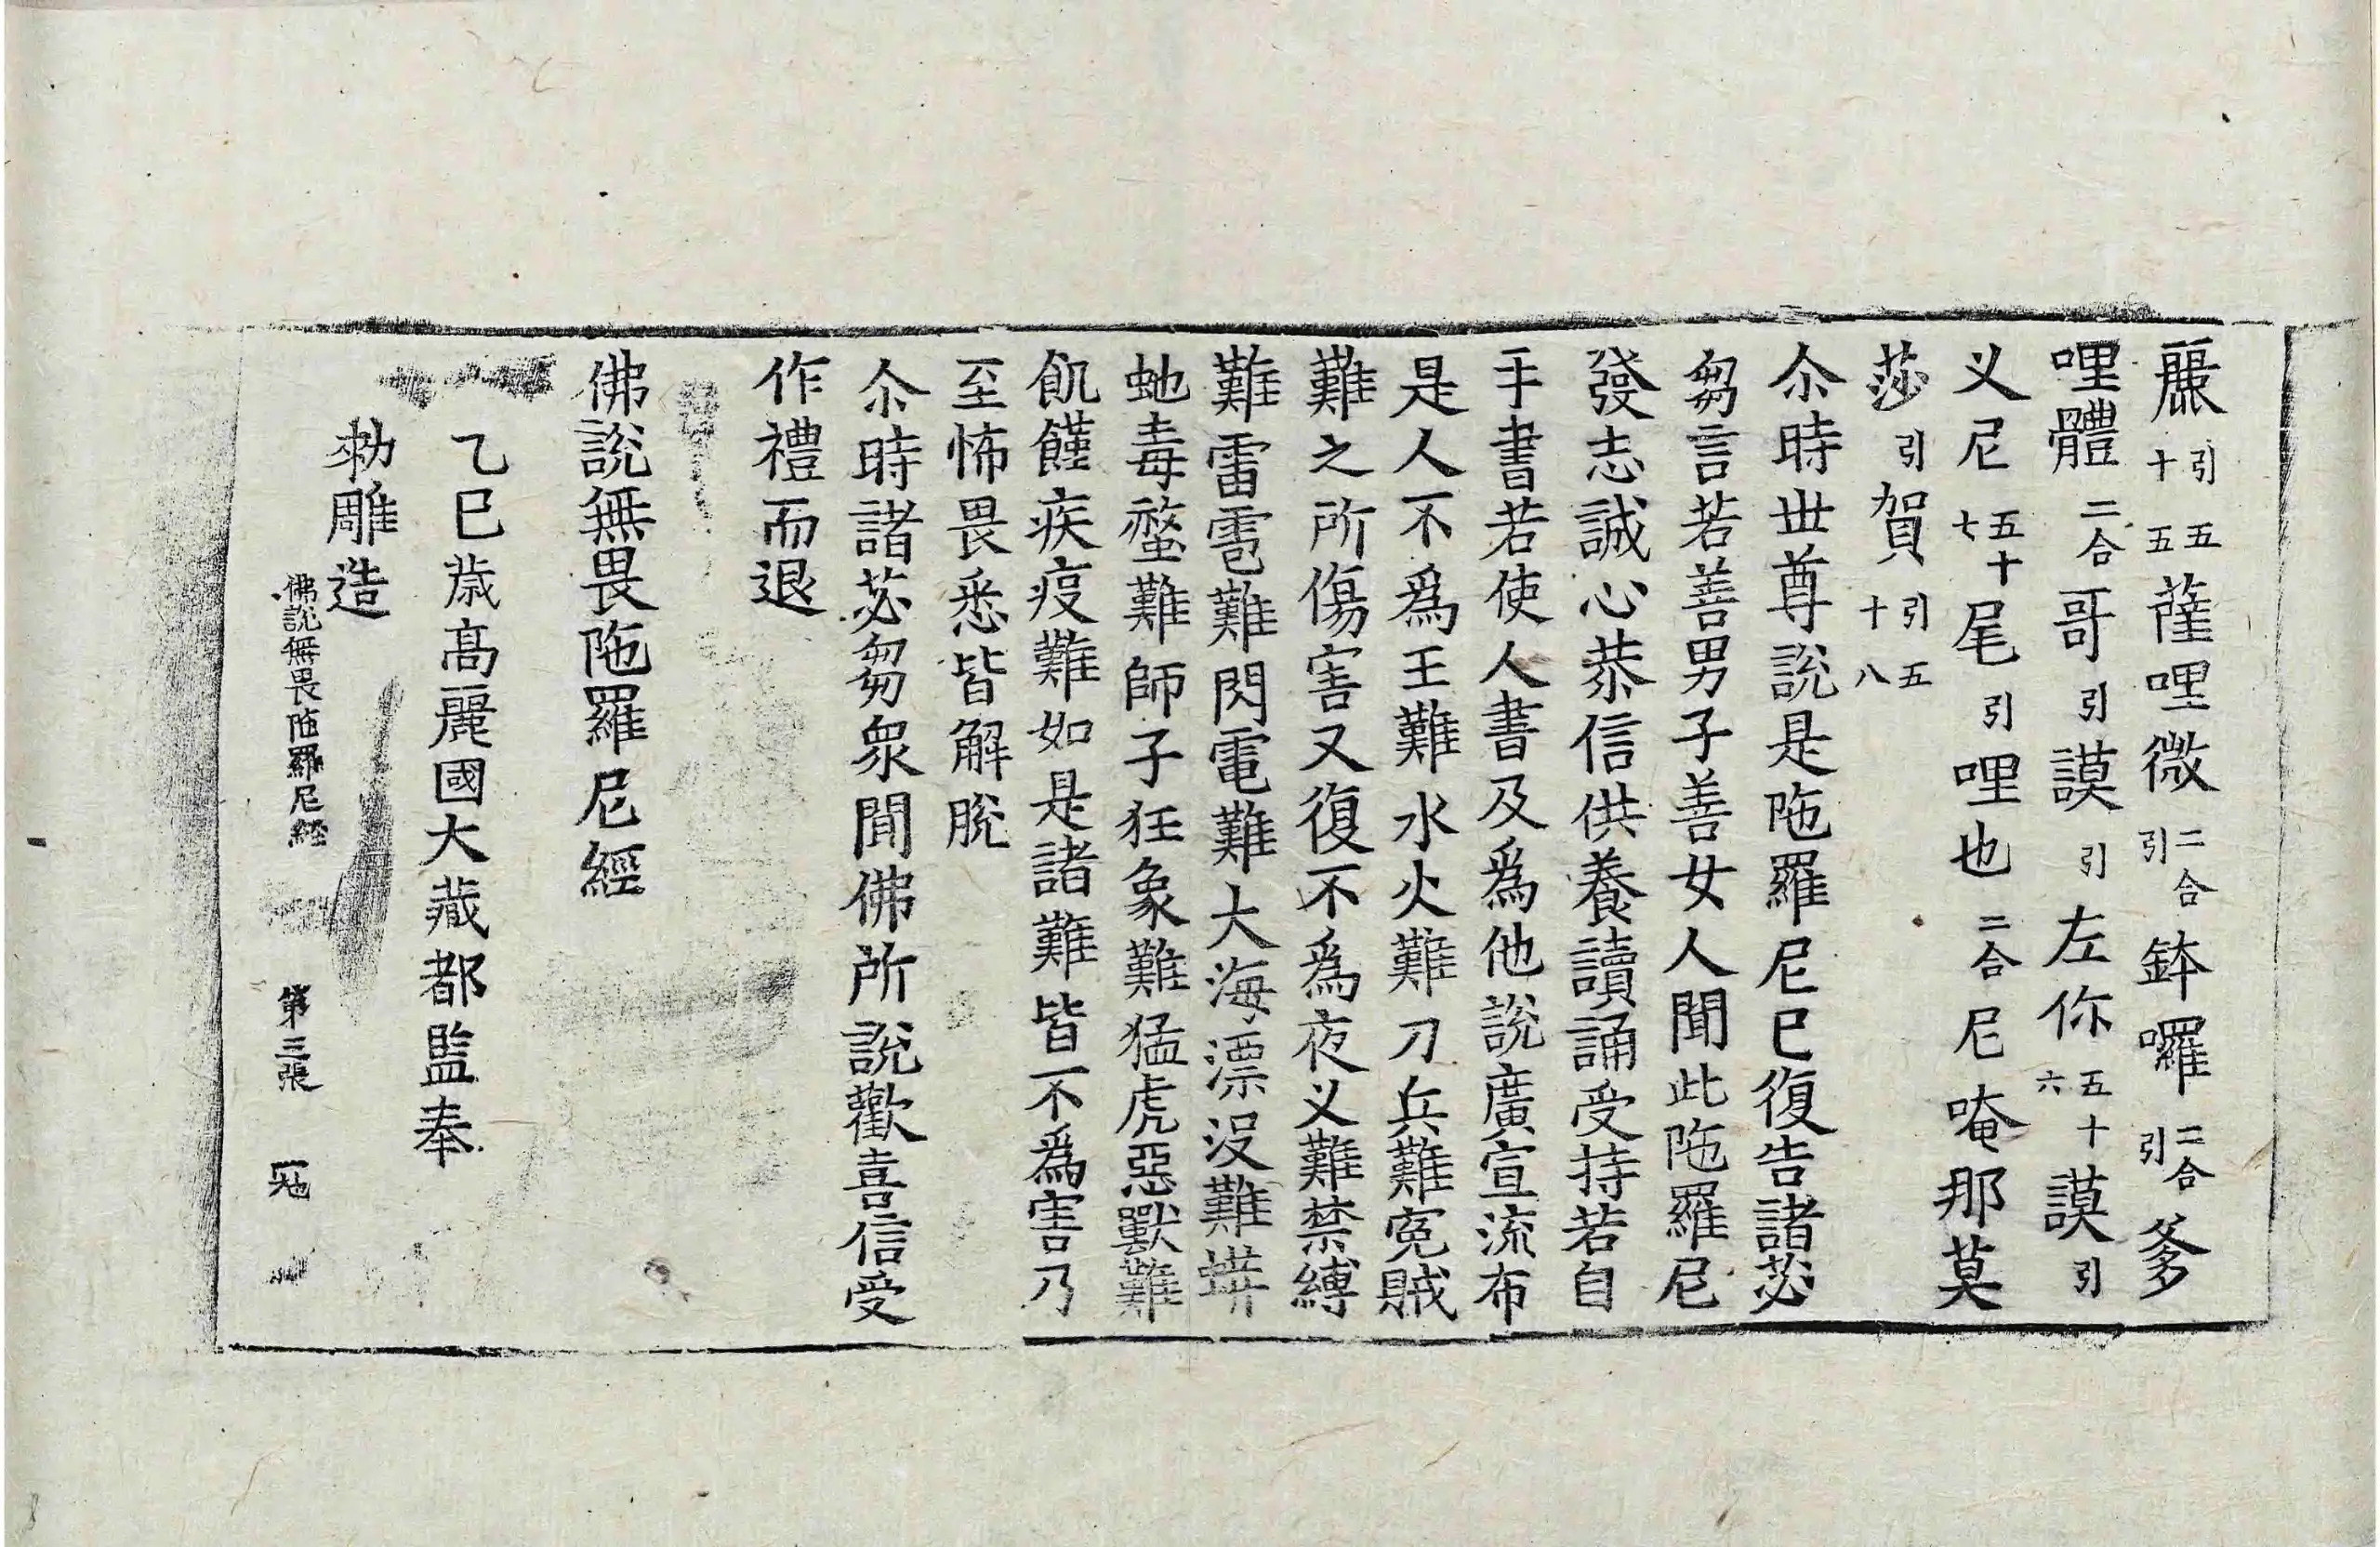 麗引五十五薩哩微二合引鉢囉二合引爹
哩體二合哥引謨引左你五十六謨引
义尼五十七尾引哩也二合尼唵那莫
莎引賀引五十八
尒時世尊說是陁羅尼已復告諸苾
芻言若善男子善女人聞此陁羅尼
發志誠心恭信供養讀誦受持若自
手書若使人書及爲他說廣宣流布
是人不爲王難水火難刀兵難寃賊
難之所傷害又復不爲夜义難禁縛
難雷雹難閃電難大海漂没難
虵毒螫難師子狂象難猛虎惡獸難
飢饉疾疫難如是諸難皆不爲害乃
至怖畏悉皆解脫
尒時諸苾芻衆聞佛所說歡喜信受
作禮而退
佛說無畏陁羅尼經
乙巳歲高麗國大藏都監奉
勑雕造
佛說無畏陁羅尼經 第三張